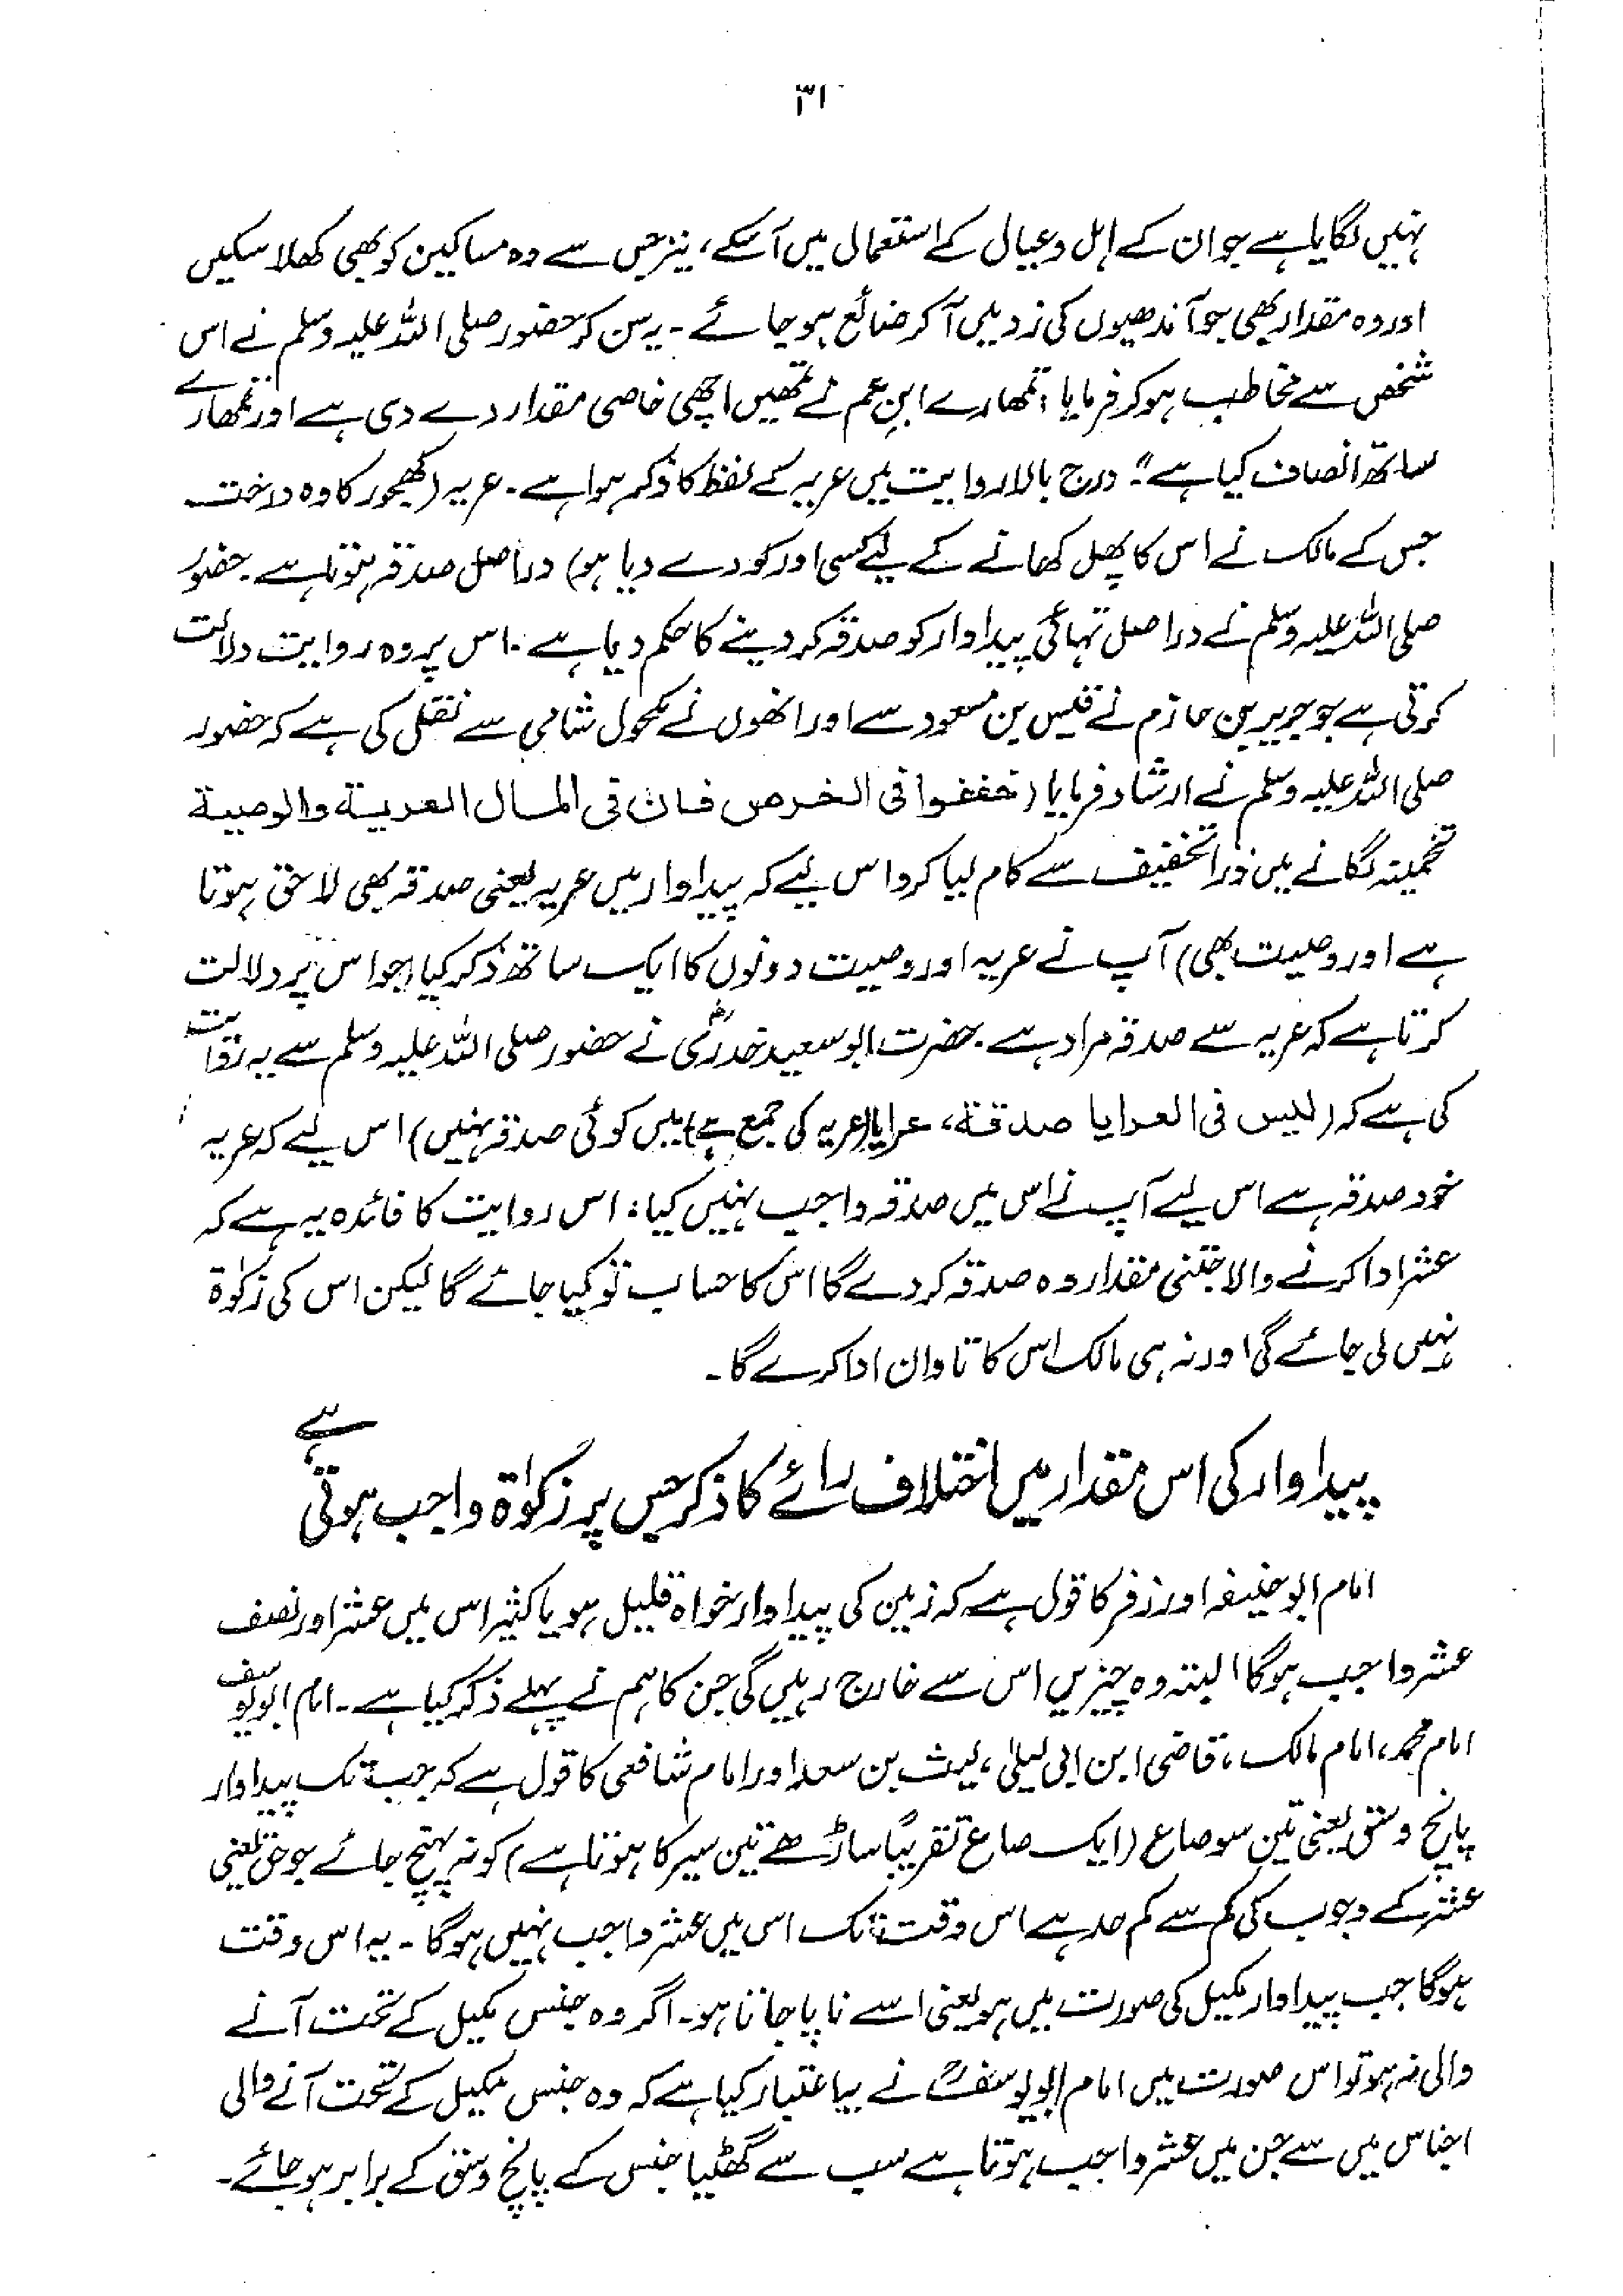 ۳۱
نہیں لگایا ہے جو ان کے اہل و عیال کے استعمال میں آسکے، نیز جس سے وہ مساکین کو بھی کھلا سکیں
اور وہ مقدار بھی جو آندھیوں کی زد میں آکر ضائع ہو جائے۔ یہ سن کر حضور صلی اللہ علیہ وسلم نے اس
شخص سے مخاطب ہو کر فرمایا: تمھارے ابن عم نے تمھیں اچھی خاصی مقدار دے دی ہے اور تمھارے
ساتھ انصاف کیا ہے"۔ درج بالا روایت میں عریہ کے لفظ کا ذکر ہوا ہے۔ عریہ (کھجور کا وہ درخت
جس کے مالک نے اس کا پھل کھانے کے لیے کسی اور کو دے دیا ہو) دراصل صدقہ ہوتا ہے۔ حضور
صلی اللہ علیہ وسلم نے دراصل تہائی پیداوار کو صدقہ کر دینے کا حکم دیا ہے۔ اس پر وہ روایت دلالت
کرتی ہے جو جریر بن حازم نے قیس بن مسعود سے اور انھوں نے مکحول شامی سے نقل کی ہے کہ حضور
صلی اللہ علیہ وسلم نے ارشاد فرمایا (خففوا فی الخرص فان فی المال العریۃ والوصیۃ
تخمینہ لگانے میں ذرا تخفیف سے کام لیا کرو اس لیے کہ پیداوار میں عریہ یعنی صدقہ بھی لاحق ہوتا
ہے اور وصیت بھی) آپ نے عریہ اور وصیت دونوں کا ایک ساتھ ذکر کیا جو اس پر دلالت
کرتا ہے کہ عریہ سے صدقہ مراد ہے۔ حضرت ابوسعید خدریؓ نے حضور صلی اللہ علیہ وسلم سے یہ روایت
کی ہے کہ (لیس فی العرایا صدقۃ، عرایا (عریہ کی جمع ہے) میں کوئی صدقہ نہیں) اس لیے کہ عریہ
خود صدقہ ہے اس لیے آپ نے اس میں صدقہ واجب نہیں کیا۔ اس روایت کا فائدہ یہ ہے کہ
عشر ادا کرنے والا جتنی مقدار وہ صدقہ کر دے گا اس کا حساب تو کیا جائے گا لیکن اس کی زکوٰۃ
نہیں لی جائے گی اور نہ ہی مالک اس کا تاوان ادا کرے گا۔
پیداوار کی اس مقدار میں اختلاف رائے کا ذکر جس پر زکوٰۃ واجب ہوتی ہے
امام ابوحنیفہ اور زفر کا قول ہے کہ زمین کی پیداوار خواہ قلیل ہو یا کثیر اس میں عشر اور نصف
عشر واجب ہوگا البتہ وہ چیزیں اس سے خارج رہیں گی جن کا ہم نے پہلے ذکر کیا ہے۔ امام ابویوسف
امام محمد، امام مالک، قاضی ابن ابی لیلیٰ، لیث بن سعد اور امام شافعی کا قول ہے کہ جب تک پیداوار
پانچ وسق یعنی تین سو صاع (ایک صاع تقریباً ساڑھے تین سیر کا ہوتا ہے) کو نہ پہنچ جائے جو حق یعنی
عشر کے وجوب کی کم سے کم حد ہے اس وقت تک اس میں عشر واجب نہیں ہوگا۔ یہ اس وقت
ہوگا جب پیداوار مکیل کی صورت میں ہو یعنی اسے ناپا جاتا ہو۔ اگر وہ جنس مکیل کے تحت آنے
والی نہ ہو تو اس صورت میں امام ابویوسفؒ نے یہ اعتبار کیا ہے کہ وہ جنس مکیل کے تحت آنے والی
اجناس میں سے جن میں عشر واجب ہوتا ہے سب سے گھٹیا جنس کے پانچ وسق کے برابر ہو جائے۔